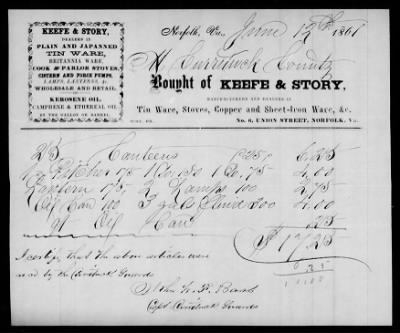 KEEFE & STORY,
DEALERS IN
PLAIN AND JAPANNED
TIN WARE,
BRITANNIA WARE,
COOK & PARLOR STOVES,
CISTERN AND FORCE PUMPS,
LAMPS, LANTERNS, &c.
WHOLESALE AND RETAIL.
KEROSENE OIL,
CAMPHENE & ETHEREAL OIL
BY THE GALLON OR BARREL.
Norfolk, Va., June 1861
M Currituck County
Bought of KEEFE & STORY,
MANUFACTURERS AND DEALERS IN
Tin Ware, Stoves, Copper and Sheet-Iron Ware, &c.
No. 6, UNION STREET, NORFOLK, VA.
25 Canteens 25 6.25
Pitcher 175 1 Do. 150 1 Do. 75 4.00
Lantern 175 2 Lamps 100 2.75
Oil Can 100 3 gals Fluid 300 4.00
Oil Can 25
$17.25
I certify that the above articles were
used by the Currituck Guards
Capt Currituck Guards